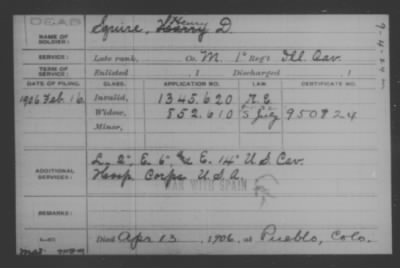 DEAD
NAME OF SOLDIER: Squire, Harry D.
Henry
SERVICE: Late rank, Co. M. 1" Reg't Ill. Cav.
TERM OF SERVICE: Enlisted , 1 Discharged , 1
DATE OF FILING. CLASS. APPLICATION NO. LAW. CERTIFICATE NO.
1906 Feb. 16. Invalid, 1345.620
Widow, 852.610 950824
Minor,
ADDITIONAL SERVICES: E. 14" U.S. Cav.
Hosp. Corps U.S.A.
WAR WITH SPAIN
REMARKS:
Died Apr 13, 1906, at Pueblo, Colo.